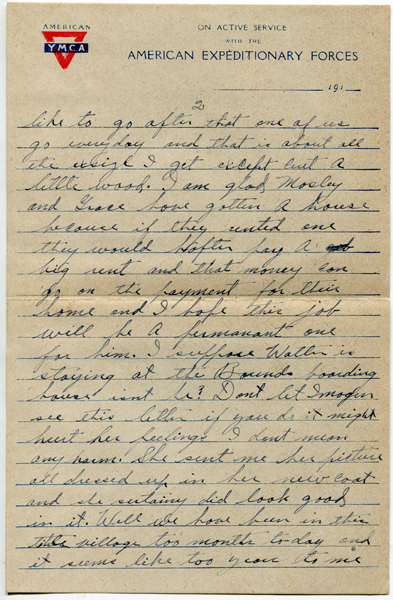 AMERICAN
Y.M.C.A.
ON ACTIVE SERVICE
WITH THE
AMERICAN EXPEDITIONARY FORCES
191
2
like to go after that one of us
go everyday and that is about all
the exsize I get except cut a
little wood. I am glad Mosley
and Grace have gotten a house
because if they rented one
they would hafter pay a
big rent and that money can
go on the payment for their
home and I hope this job
will be a permanant one
for him. I suppose Walter is
staying at the Bounds boarding
house isnt he? Dont let Imogen
see this letter if you do it might
hurt her feelings I dont mean
any harm. She sent me her picture
all dressed up in her new coat
and she sutainy did look good
in it. Well we have been in this
village too months today and
it seems like too years to me